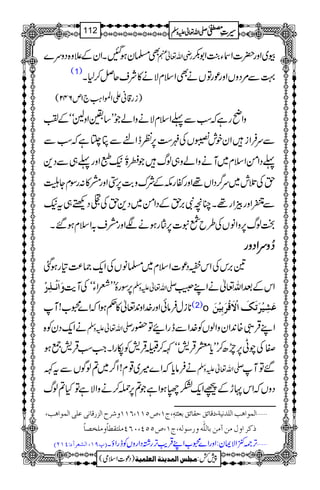 سیرتِ مصطفی صلی اللہ تعالیٰ علیہ وسلم 112
بیوی اور حضرت اسماء بنت ابوبکر رضی اللہ تعالیٰ عنہم بھی مسلمان ہو گئیں۔ ان کے علاوہ دوسرے
بہت سے مردوں اور عورتوں نے بھی اسلام لانے کا شرف حاصل کر لیا۔(1)
(زرقانی علی المواہب ج۱ ص۲۴۶)
واضح رہے کہ سب سے پہلے اسلام لانے والے جو ’’سابقین اولین‘‘ کے لقب
سے سرفراز ہیں ان خوش نصیبوں کی فہرست پر نظر ڈالنے سے پتا چلتا ہے کہ سب سے
پہلے دامن اسلام میں آنے والے وہی لوگ ہیں جو فطرۃً نیک طبع اور پہلے ہی سے دین
حق کی تلاش میں سرگرداں تھے اور کفار مکہ کے شرک و بت پرستی اور مشرکانہ رسوم جاہلیت
سے متنفر اور بیزار تھے۔ چنانچہ نبی برحق کے دامن میں دین حق کی تجلی دیکھتے ہی یہ نیک
بخت لوگ پروانوں کی طرح شمع نبوت پر نثار ہونے لگے اور مشرف بہ اسلام ہو گئے۔
دوسرا دور
تین برس کی اس خفیہ دعوت اسلام میں مسلمانوں کی ایک جماعت تیار ہوگئی
اس کے بعد اللہ تعالیٰ نے اپنے حبیب صلی اللہ تعالیٰ علیہ وسلم پر سورۂ ’’شعراء‘‘ کی آیت وَاَنْذِرْ
عَشِیْرَتَکَ الْاَقْرَبِیْنَ o(2) نازل فرمائی اور خداوند تعالیٰ کا حکم ہوا کہ اے محبوب! آپ
اپنے قریبی خاندان والوں کو خدا سے ڈرائیے تو حضور صلی اللہ تعالیٰ علیہ وسلم نے ایک دن کوہ
صفا کی چوٹی پر چڑھ کر ’’یا معشر قریش‘‘ کہہ کر قبیلہ قریش کو پکارا۔ جب سب قریش جمع ہو
گئے تو آپ صلی اللہ تعالیٰ علیہ وسلم نے فرمایا کہ اے میری قوم! اگر میں تم لوگوں سے یہ کہہ
دوں کہ اس پہاڑ کے پیچھے ایک لشکر چھپا ہوا ہے جو تم پر حملہ کرنے والا ہے تو کیا تم لوگ
المواهب اللدنية،دقائق حقائق بعثتہ،ج۱،ص۱۱۵،۱۱۶وشرح الزرقانی علی المواهب،
ذکر اول من آمن باللّٰه ورسوله، ج۱،ص۴۵۵،۴۶۰ملتقطاًوملخصاً
ترجمۂ کنزالایمان:اور اے محبوب اپنے قریب تر رشتہ داروں کو ڈراؤ۔(پ۱۹، الشعرآء:۲۱۴)
پیش کش: مجلس المدينة العلمية (دعوتِ اسلامی)